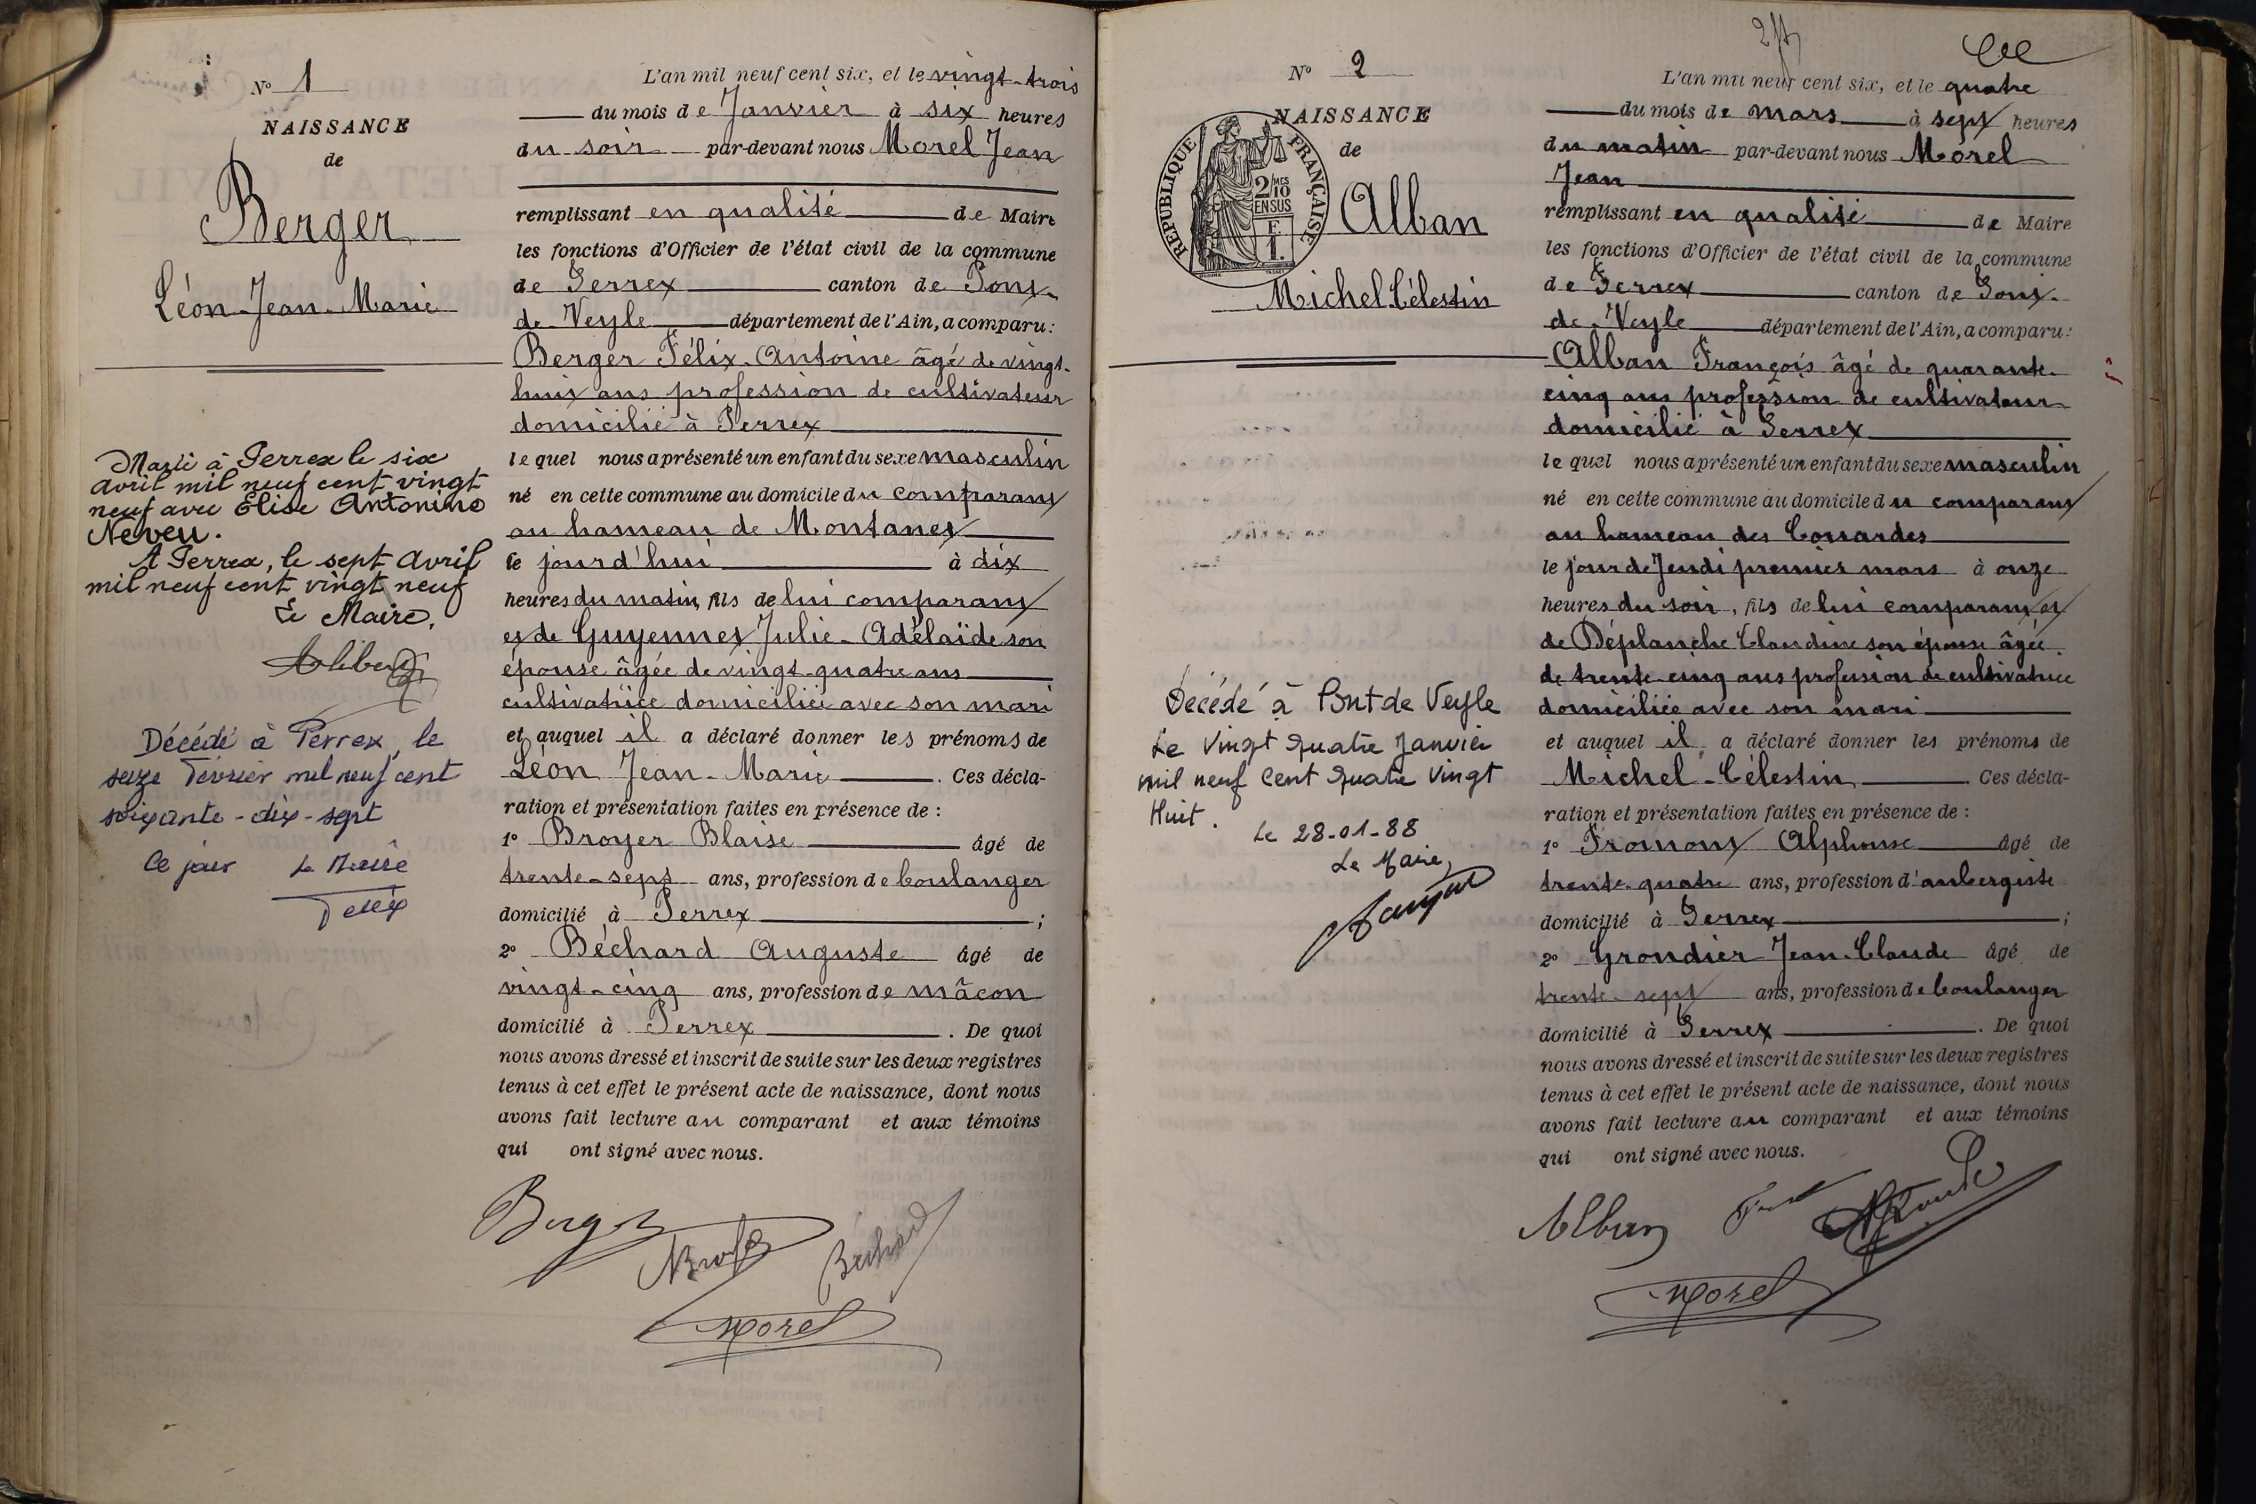 N° 1
NAISSANCE
de
Berger
Léon-Jean-Marie
Marié à Perrex le six
avril mil neuf cent vingt
neuf avec Elise Antonine
Neveu.
A Perrex, le sept Avril
mil neuf cent vingt neuf
Le Maire,
Décédé à Perrex, le
seize Février mil neuf cent
soixante-dix-sept
Ce jour Le Maire
L'an mil neuf cent six, et le vingt-trois
du mois de Janvier à six heures
du soir par-devant nous Morel Jean
remplissant en qualité de Maire
les fonctions d'Officier de l'état civil de la commune
de Perrex canton de Pont-
de-Veyle département de l'Ain, a comparu:
Berger Félix-Antoine âgé de vingt-
huit ans profession de cultivateur
domicilié à Perrex
lequel nous a présenté un enfant du sexe masculin
né en cette commune au domicile du comparant
au hameau de Montanet
le jourd'hui à dix
heures du matin, fils de lui comparant
et de Guyennet Julie-Adélaïde son
épouse âgée de vingt-quatre ans
cultivatrice domiciliée avec son mari
et auquel il a déclaré donner les prénoms de
Léon Jean-Marie. Ces décla-
ration et présentation faites en présence de :
1° Broyer Blaise âgé de
trente-sept ans, profession de boulanger
domicilié à Perrex ;
2° Béchard Auguste âgé de
vingt-cinq ans, profession de mâcon
domicilié à Perrex. De quoi
nous avons dressé et inscrit de suite sur les deux registres
tenus à cet effet le présent acte de naissance, dont nous
avons fait lecture au comparant et aux témoins
qui ont signé avec nous.
Berger
Broyer
Béchard
Morel
N° 2
NAISSANCE
de
RÉPUBLIQUE FRANÇAISE
2/10 MES
EN SUS
F
1.
Alban
Michel Célestin
Décédé à Pont de Veyle
Le Vingt Quatre Janvier
mil neuf Cent Quatre Vingt
Huit.
Le 28-01-88
Le Maire,
L'an mil neuf cent six, et le quatre
du mois de mars à sept heures
du matin par-devant nous Morel
Jean
remplissant en qualité de Maire
les fonctions d'Officier de l'état civil de la commune
de Perrex canton de Pont-
de-Veyle département de l'Ain, a comparu:
Alban François âgé de quarante-
cinq ans profession de cultivateur
domicilié à Perrex
lequel nous a présenté un enfant du sexe masculin
né en cette commune au domicile du comparant
au hameau des Cossardes
le jour de Jeudi premier mars à onze
heures du soir, fils de lui comparant et
de Déplanche Claudine son épouse âgée
de trente-cinq ans profession de cultivatrice
domiciliée avec son mari
et auquel il a déclaré donner les prénoms de
Michel-Célestin. Ces décla-
ration et présentation faites en présence de :
1° Fromont Alphonse âgé de
trente-quatre ans, profession d'aubergiste
domicilié à Perrex ;
2° Grondier Jean-Claude âgé de
trente-sept ans, profession de boulanger
domicilié à Perrex. De quoi
nous avons dressé et inscrit de suite sur les deux registres
tenus à cet effet le présent acte de naissance, dont nous
avons fait lecture au comparant et aux témoins
qui ont signé avec nous.
Alban
Morel